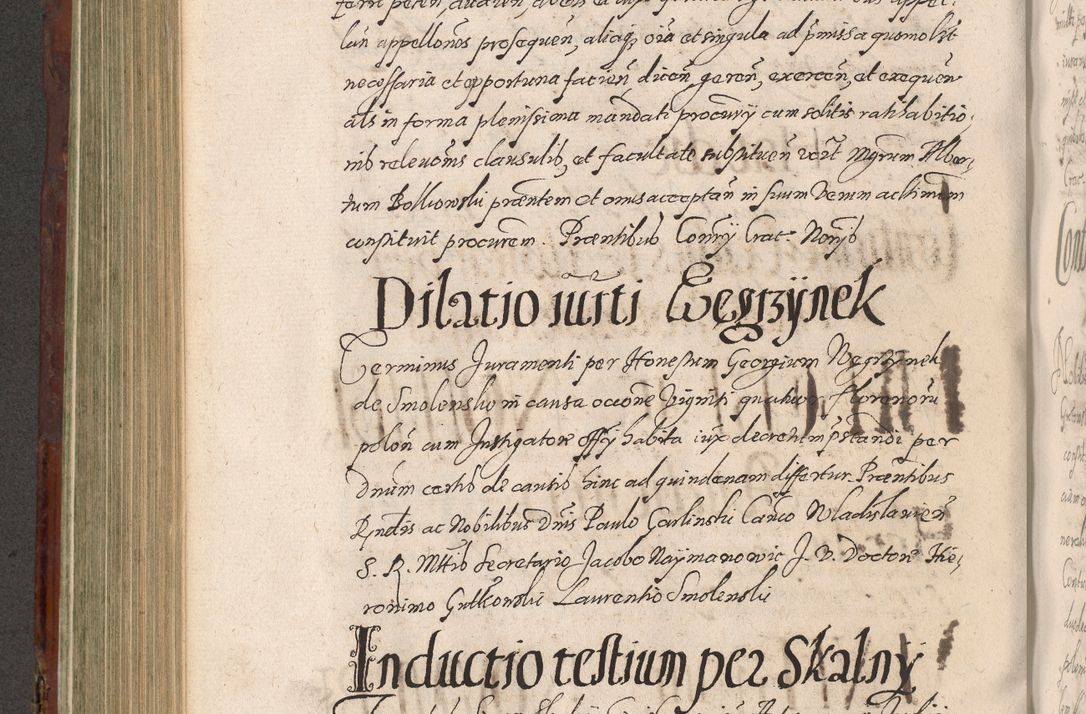 lun appellonos prosequen, aliaq oia et singula ad pmissa quomolbt
necessaria et opportuna facien, dicen, geren, exercen, et exequen
als in forma plenissima mandati procurij cum solitis ratihabitio,
nib releuonis clausulib, et facultate substituen
tum Bolkowski prentem et onus acceptan in suum verum ac
constituit procurem. Prentibus Crac. Norijs
Dilatio iurti Wegrzÿnek
Terminus Juramenti per Honestum Georgium Wegrzynek
de Smolensko in causa occone Viginti quatuor florenorũ
polon cum Instigatore offij habita iux decretum pstandi per
Dnum certis de causis hinc ad quindenam differtur. Prentibus
Rndis ac Nobilibus Dnis Paulo Gorlinski Canco Wladislauien
S. R. Mttis Secretario, Jacobo Naymanowic J. V. Doctore Hie,
ronimo Gutkowski Laurentio Smolenski
Inductio testium per Skalnÿ